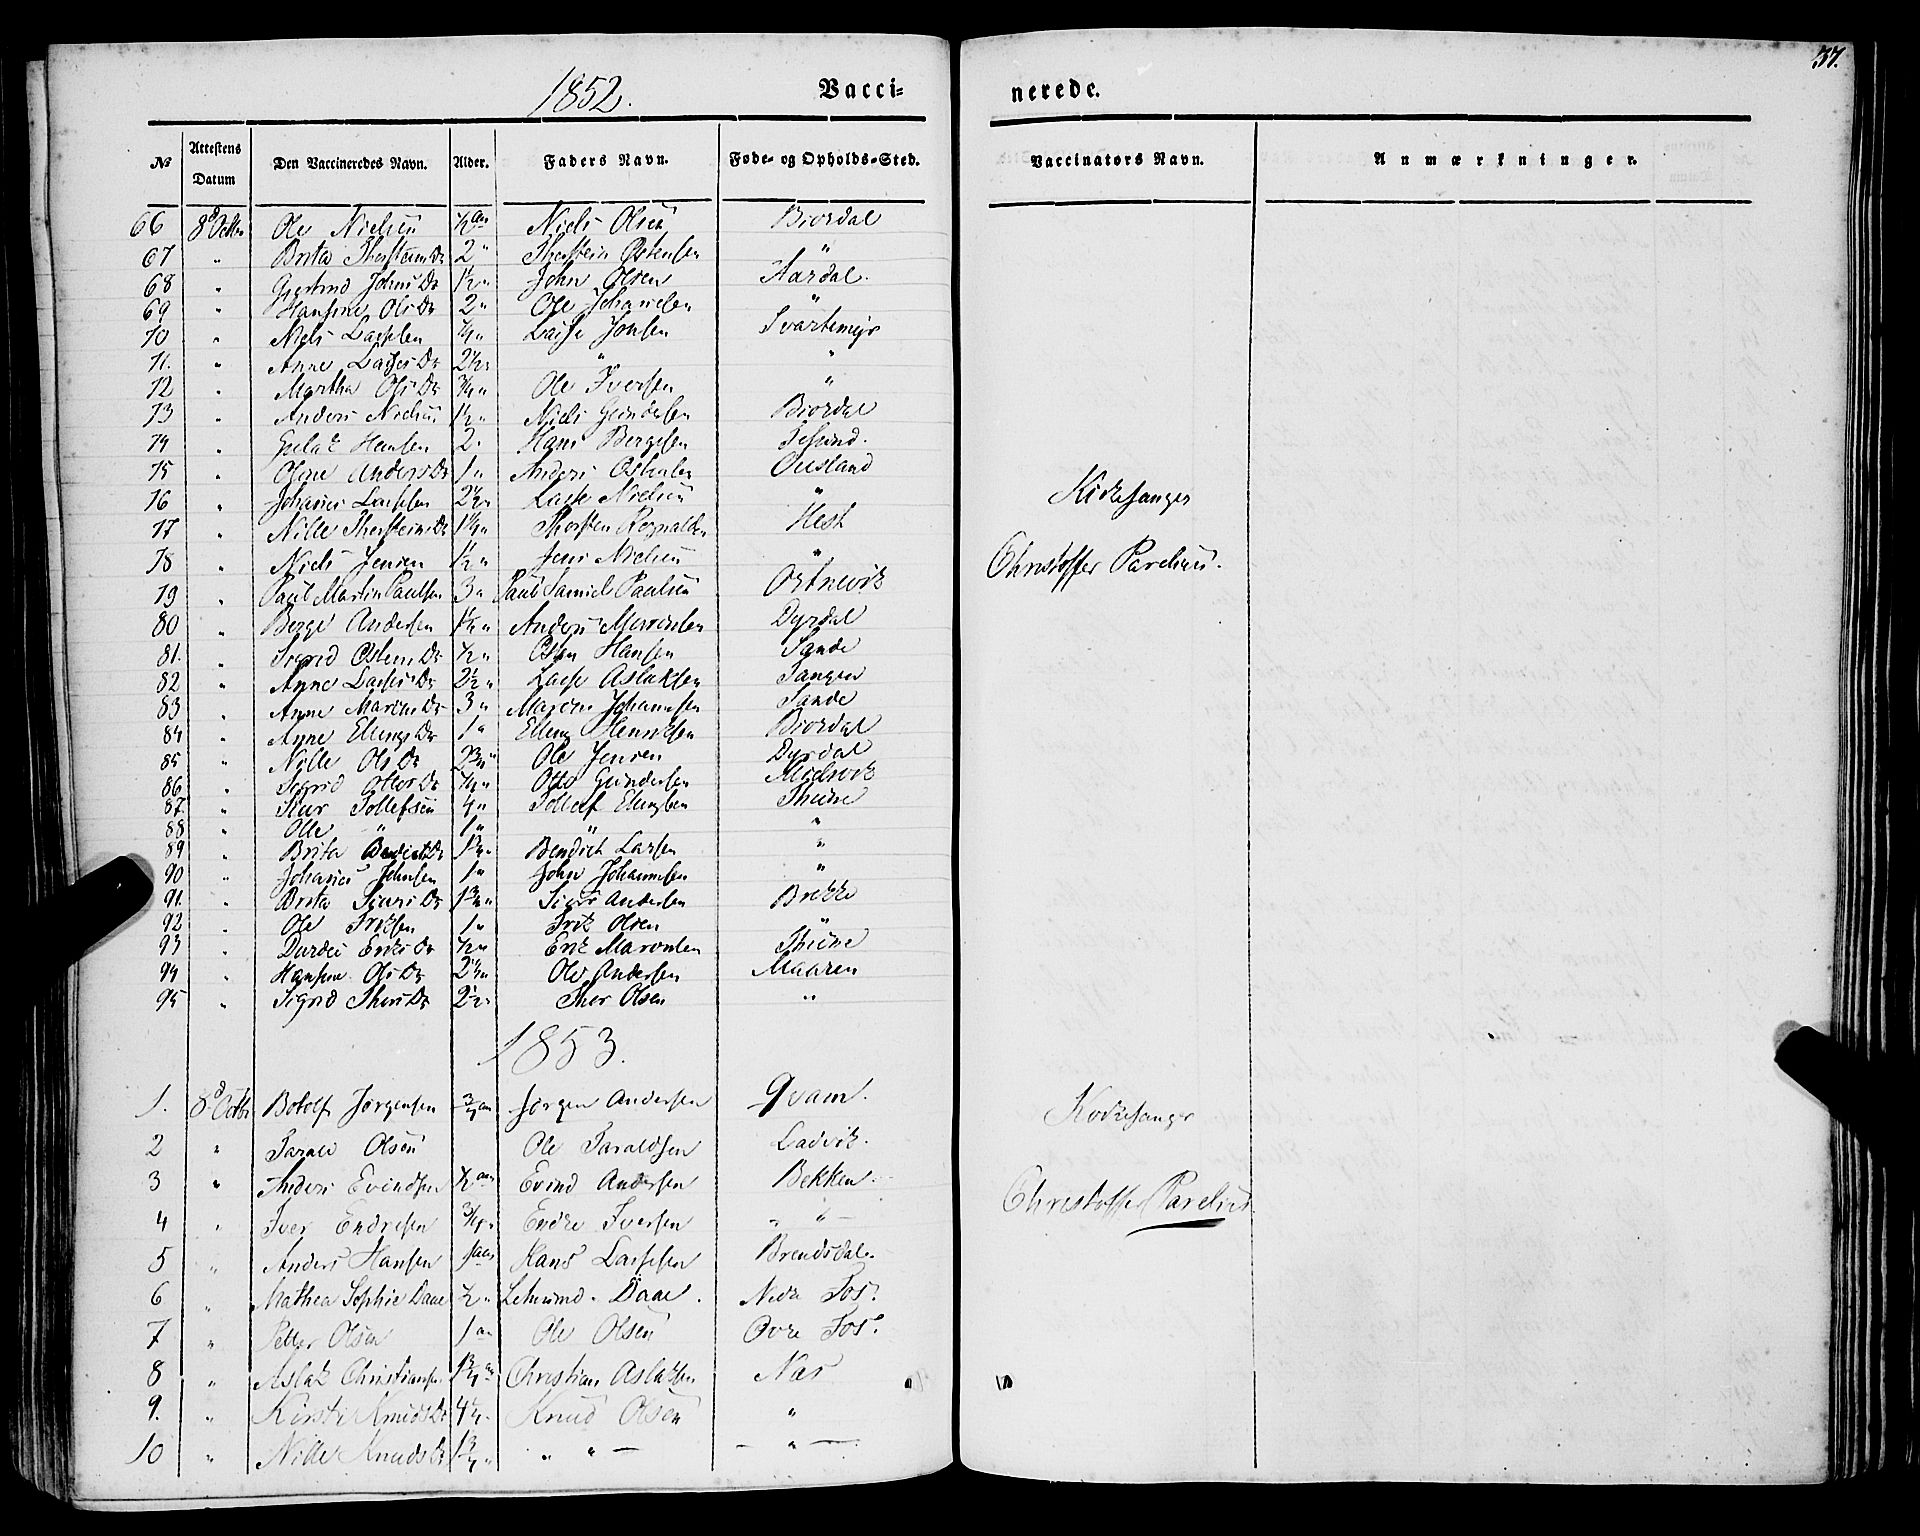 37.
1852. Vacci- nerede.
No Attestens Datum Den Vaccineredes Navn. Alder. Faders Navn. Føde- og Opholds-Sted. Vaccinators Navn. Anmærkninger.
66 8d Octbr Ole Nielsen 1/2 aar Niels Olsen Biordal
67 " Brita Thorsteins Dr 2 " Thorstein Østensen "
68 " Giertrud Johns Dr 1 1/2 " John Olsen Aardal.
69 " Hansine Ols Dr 2 " Ole Johannesen "
70 " Niels Lassesen Lasse Johnsen Svartemyr
71. " Anne Lasses Dr 2 1/2 " "
72 " Martha Ols Dr 3/4 " Ole Iversen "
73 " Anders Nielsen 1 1/2 " Niels Gundersen Biordal
74 " Hansen 2 " Hans Bergesen
75 " Oline Anders Dr 1 " Anders Ousland
76 " Johannes Lassesen 2 1/2 " Lasse Nielsen " Kirkesanger
77 " Nille Thorsteins Dr 1 1/4 " Thorsten Hest
78 " Niels Jensen 1 1/2 " Jens Nielsen " Christoffer Parelius.
79 " Paul Martin Paulsen 3 " Paul Samuel Paulsen Ostrevik
80 " Berge Andersen 1 1/2 " Anders Dyrdal
81. " Sigrid Østens Dr 1/2 " Østen Hansen Sande
82 " Anne Lasses Dr 2 1/2 " Lasse Aslaksen
83 " Anne Dr 3 " Johannesen Sande
84 " Anne Ellings Dr 1 " Elling Henriksen Biordal
85 " Nille Ols Dr 2 3/4 " Ole Jensen Dyrdal
86 " Sigrid Ottos Dr Otto Gundersen
87. " Tollefsen Tollef Ellingsen Thune
88 " Olle " 1 " " "
89 " Brita Bendicts Dr Bendict Larsen "
90 " Johannes Johnsen 1 " John Johannesen "
91. " Brita Siurs Dr 1 3/4 " Siur Andersen Brekke
92 " Ole Eriksen 1 " Erik Olsen "
93 " Durdei Eriks Dr 1/2 " Erik Thune
94 " Hansine Ols Dr 2 1/4 " Ole Andersen Maaren
95 " Sigrid Thors Dr 2 1/2 " Thor Olsen "
1853.
1. 8d Octbr Botolf Jørgensen 3/4 aar Jørgen Andersen Qvam. Kirkesanger
2 " Tarald Olsen Ole Taraldsen Ladvik.
3 " Anders Evindsen 1/2 aar Evind Andersen Bekken. Christoffer Parelius
4 " Iver Endresen 3/4 " Endre Iversen "
5 " Anders Hansen 1 aar Hans Lassesen Brendsdal.
6 " Mathea Sophie Daae 1/2 " Daae. Nedre Fos.
7 " Petter Olsen 1 aar Ole Olsen Øvre Fos.
8 " Aslak Christiansen 1 3/4 aar Christian Aslaksen Næs
9. " Kirsti Knuds Dr Knud Olsen "
10 " Nille Knuds Dr 1 3/4 " " " — — " —